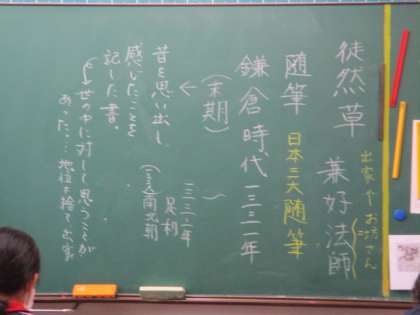 徒然草 兼好法師
出家 お坊さん
随筆 日本三大随筆
鎌倉時代 一三三一年
(末期)
一三三一年
足利
南北朝
昔を思い出し、
感じたことを
記した書。
世の中に対して思うことが
あった…地位を捨て出家